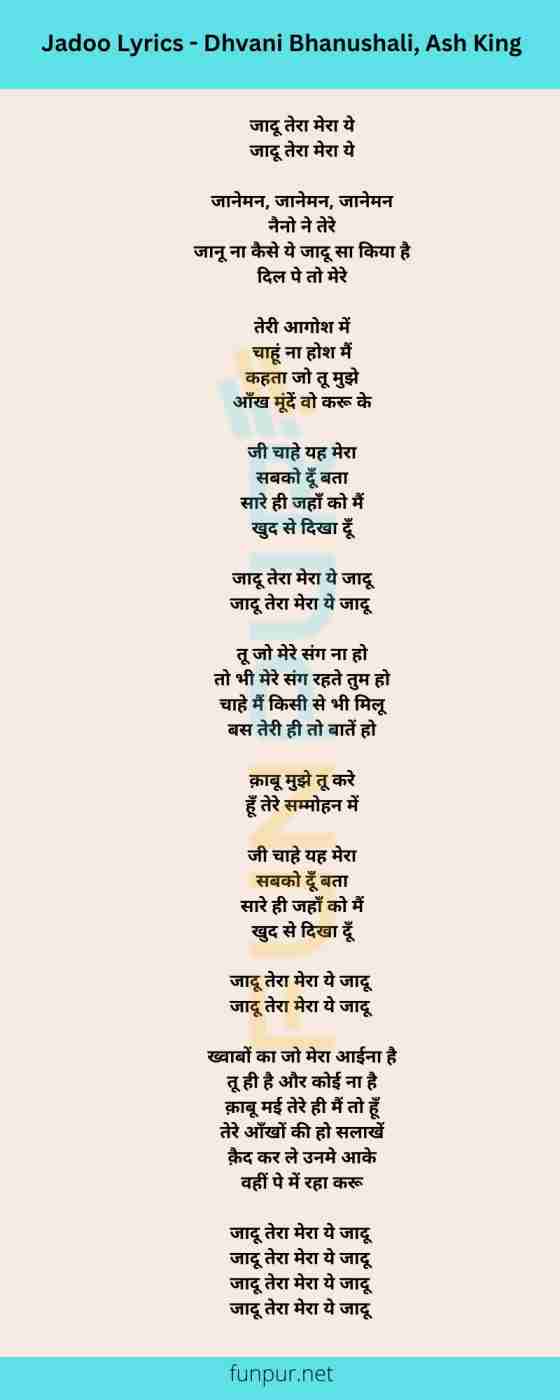 Jadoo Lyrics - Dhvani Bhanushali, Ash King
जादू तेरा मेरा ये
जादू तेरा मेरा ये
जानेमन, जानेमन, जानेमन
नैनो ने तेरे
जानू ना कैसे ये जादू सा किया है
दिल पे तो मेरे
तेरी आगोश में
चाहूं ना होश मैं
कहता जो तू मुझे
आँख मूंदें वो करू के
जी चाहे यह मेरा
सबको दूँ बता
सारे ही जहाँ को मैं
खुद से दिखा दूँ
जादू तेरा मेरा ये जादू
जादू तेरा मेरा ये जादू
तू जो मेरे संग ना हो
तो भी मेरे संग रहते तुम हो
चाहे मैं किसी से भी मिलू
बस तेरी ही तो बातें हो
क़ाबू मुझे तू करे
हूँ तेरे सम्मोहन में
जी चाहे यह मेरा
सबको दूँ बता
सारे ही जहाँ को मैं
खुद से दिखा दूँ
जादू तेरा मेरा ये जादू
जादू तेरा मेरा ये जादू
ख्वाबों का जो मेरा आईना है
तू ही है और कोई ना है
क़ाबू मई तेरे ही मैं तो हूँ
तेरे आँखों की हो सलाखें
क़ैद कर ले उनमे आके
वहीं पे में रहा करू
जादू तेरा मेरा ये जादू
जादू तेरा मेरा ये जादू
जादू तेरा मेरा ये जादू
जादू तेरा मेरा ये जादू
FUNPUR
funpur.net